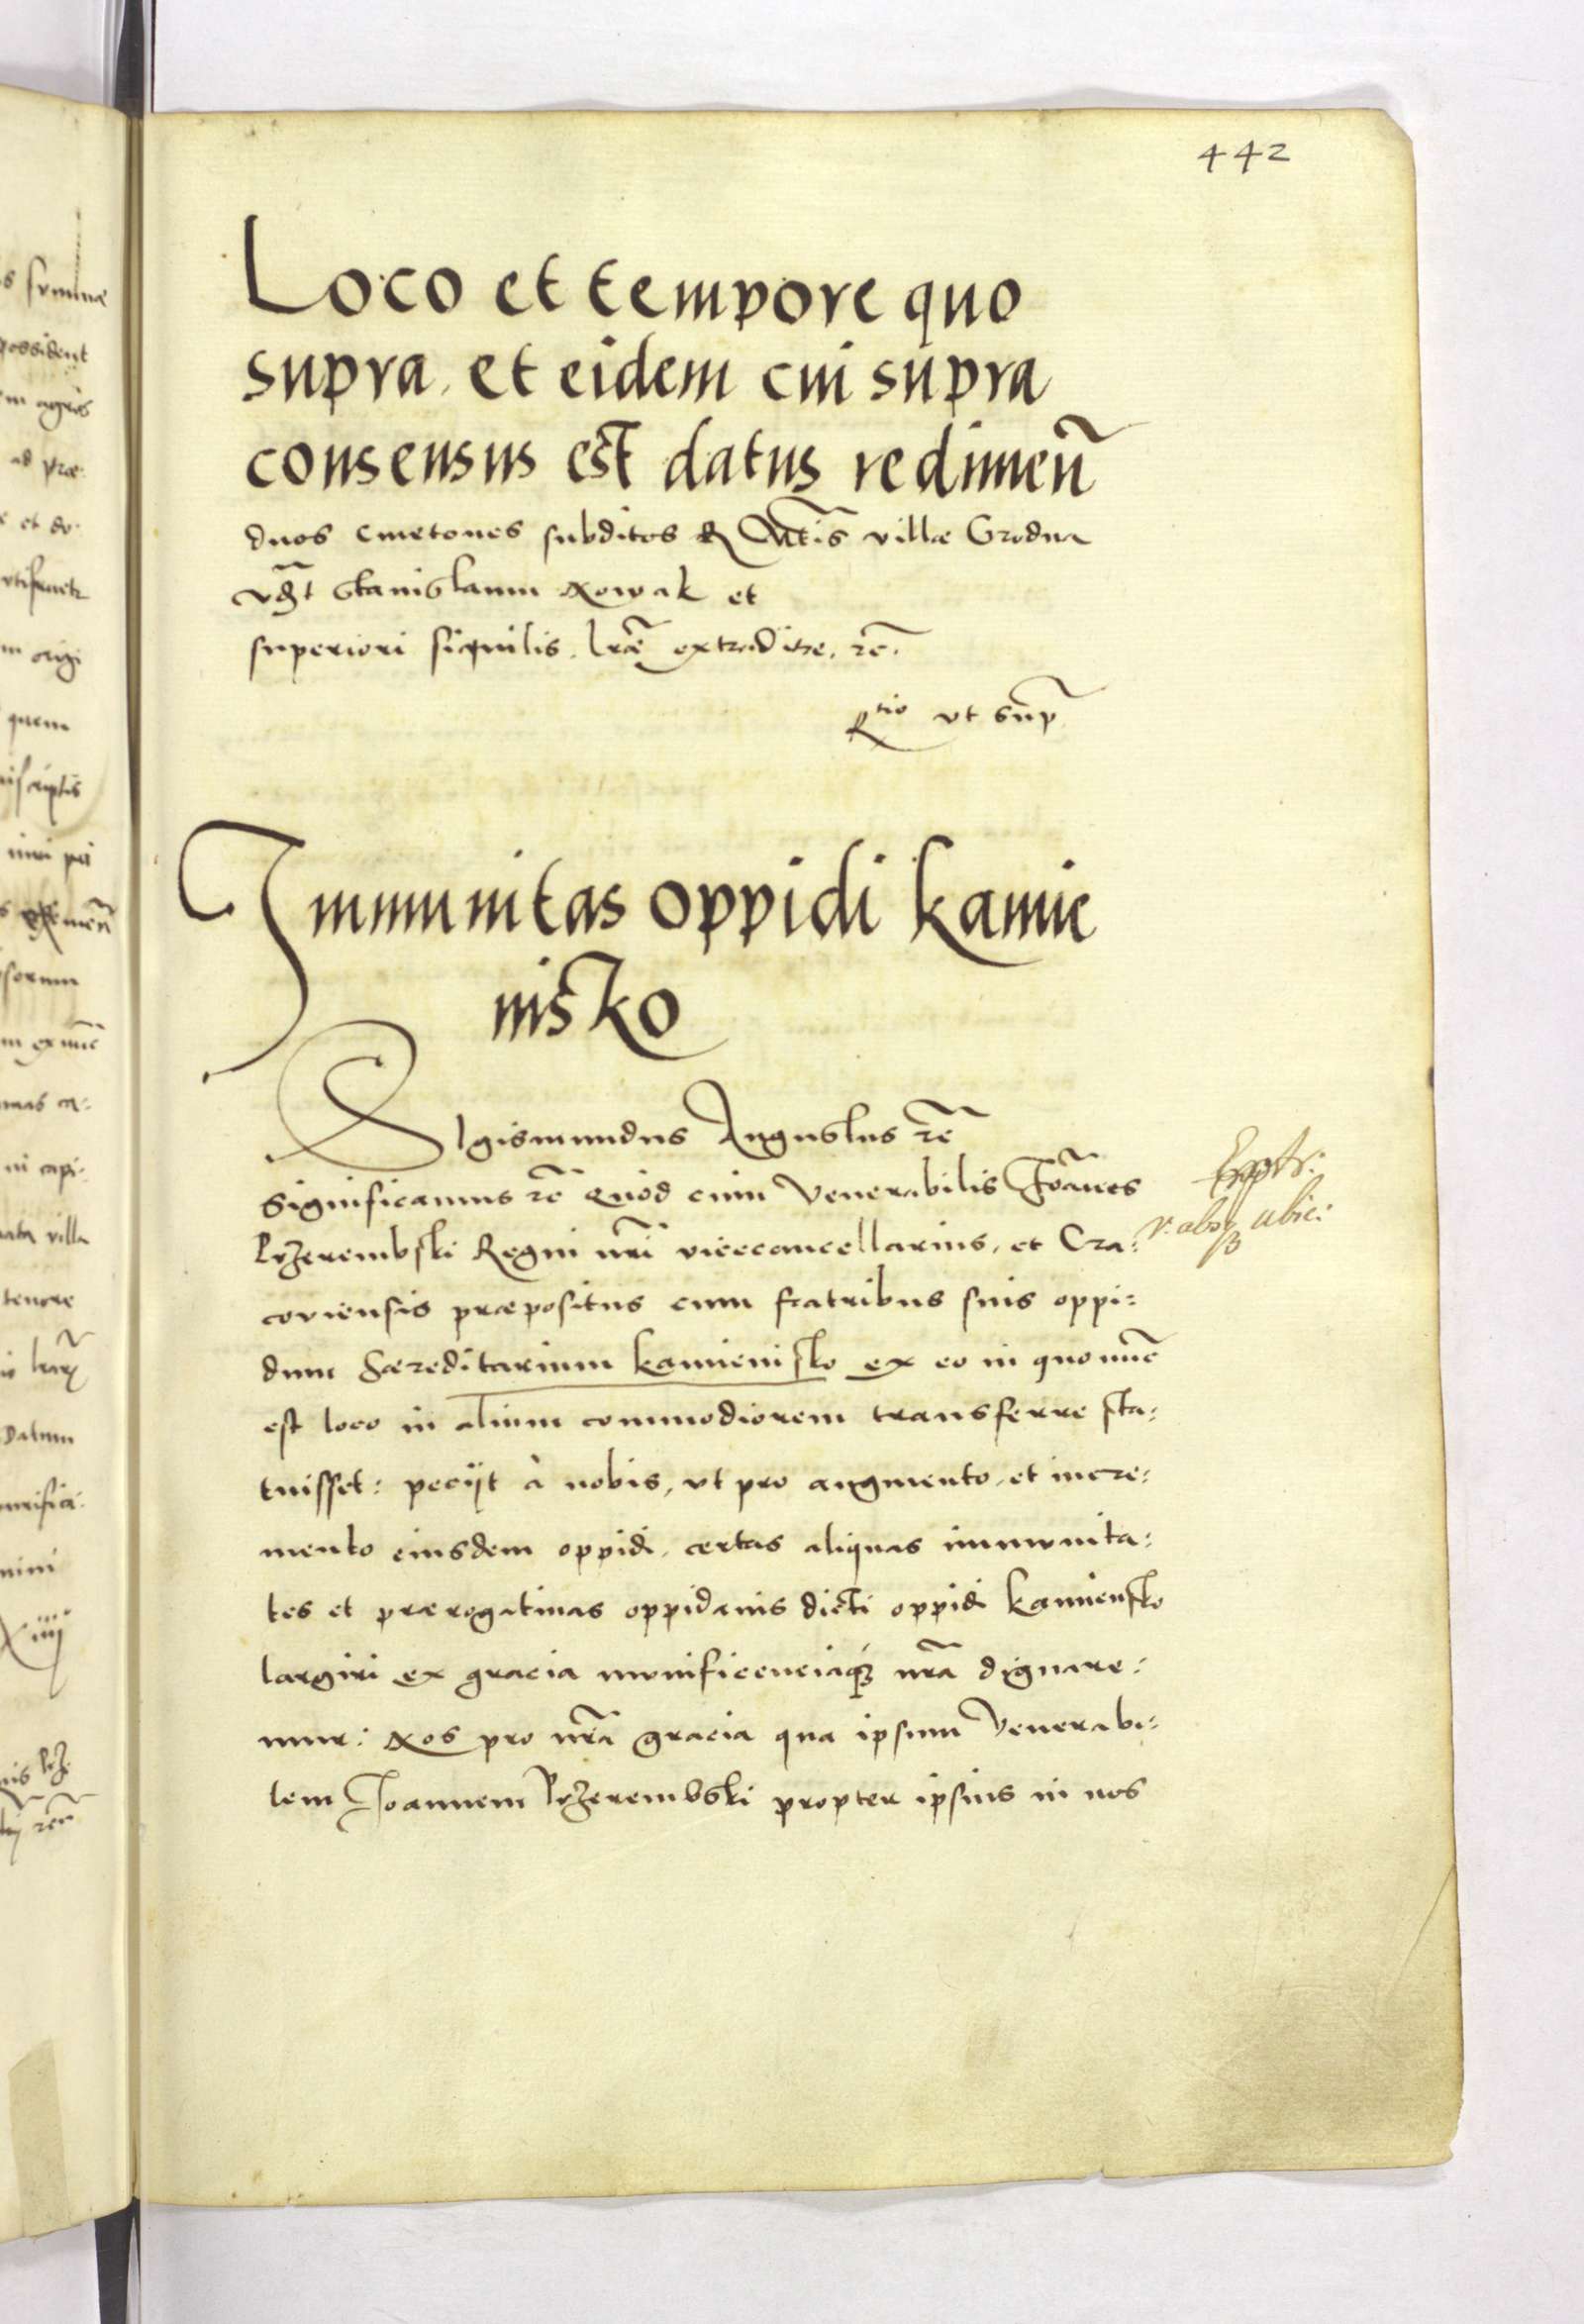 442
Loco et tempore quo
supra et eidem cui supra
consensus est datus redimen̄
duos cmetones subditos R Mtis villæ Grodna
vdꝫt Stanislaum Nowak et
superiori similis. lr̄æ extraditæ. rē.
Rtio vt supᷓ
Immunitas oppidi kamie
nisko
SIgismundus Augustus rē
Significamus rē Quod cum Venerabilis Joān̄es
Przerembski Regni nr̄i vicecancellarius, et Cra:
coviensis præpositus cum fratribus suis oppi:
dum hæreditarium kamienisko ex eo in quo nūc
est loco in alium commodiorem transferre sta:
tuisset: peciit à nobis, vt pro augmento et incre:
mento eiusdem oppidi, certas aliquas immunita:
tes et prærogatiuas oppidanis dicti oppidi kamiensko
largiri ex gracia munificenciaqꝫ nr̄a dignare:
mur: Nos pro nr̄a gracia qua ipsum Venerabi:
lem Joannem Przerembski propter ipsius in nos